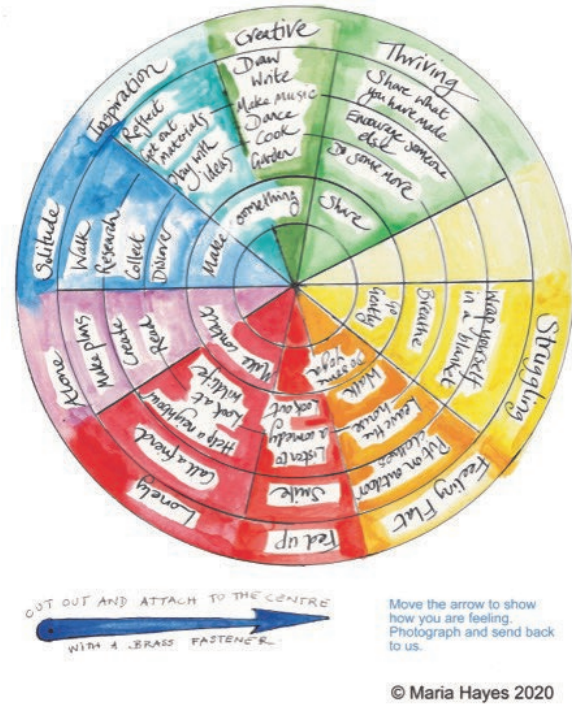 Creative
Draw
Write
Make music
Dance
Cook
Garden
Thriving
Share what
you have made
Encourage someone
else
Do some more
Share
Struggling
Wrap yourself
in a blanket
Breathe
Go
Gently
Feeling Flat
Put on outdoor
clothes
Leave the
house
Walk
Do some
yoga
Fed up
Smile
Listen to
a comedy
Look out
Lonely
Call a friend
Help a neighbour
Look at
wildlife
Make contact
Alone
Make plans
Create
Read
Solitude
Walk
Research
Collect
Discover
Inspiration
Reflect
Get out
materials
Play with
ideas
Make
something
CUT OUT AND ATTACH TO THE CENTRE
WITH A BRASS FASTENER.
Move the arrow to show
how you are feeling.
Photograph and send back
to us.
© Maria Hayes 2020